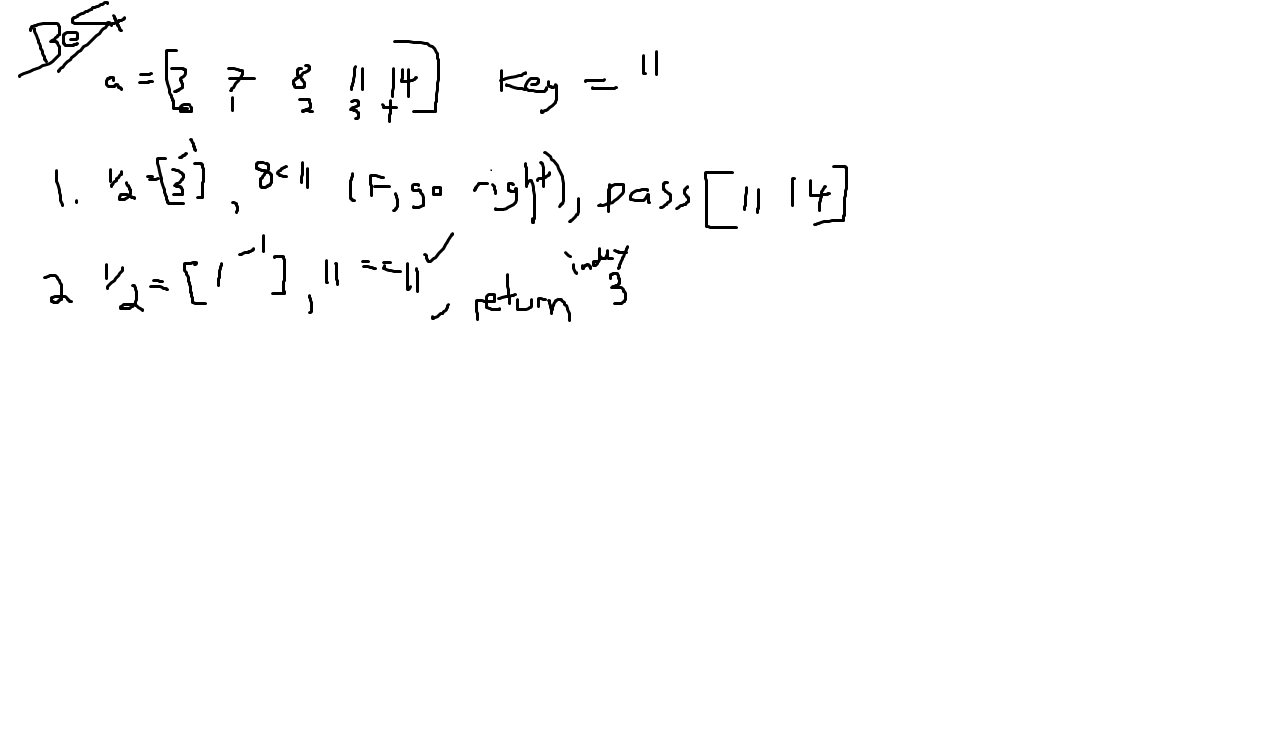 Best
a = [3 7 8 11 14] Key = 11
0 1 2 3 4
1. 1/2 = [3 -1], 8 < 11 (F, go right), pass [11 14]
2 1/2 = [1 -1], 11 == 11 ✓, return index 3